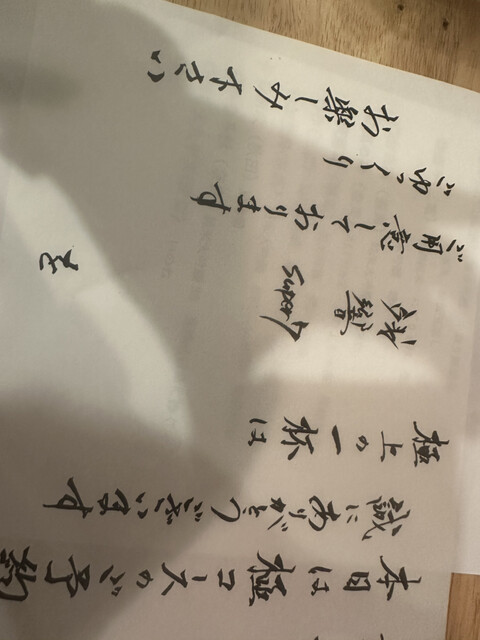 本日は極コースのご予約
誠にありがとうございます
極上の一杯は
残響 Super7
ご用意しております
ごゆっくり
お楽しみ下さい